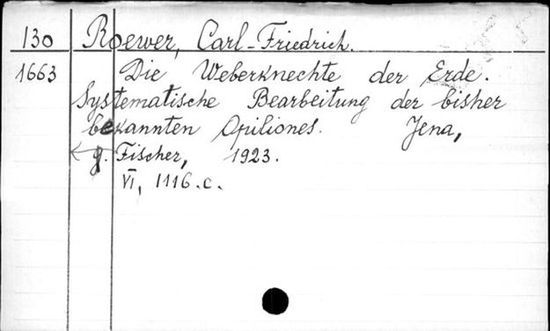 130 Roewer, Carl-Friedrich.
1663 Die Weberknechte der Erde.
Systematische Bearbeitung der bisher
bekannten Opiliones. Jena,
g. Fischer, 1923.
VI, 1116.c.